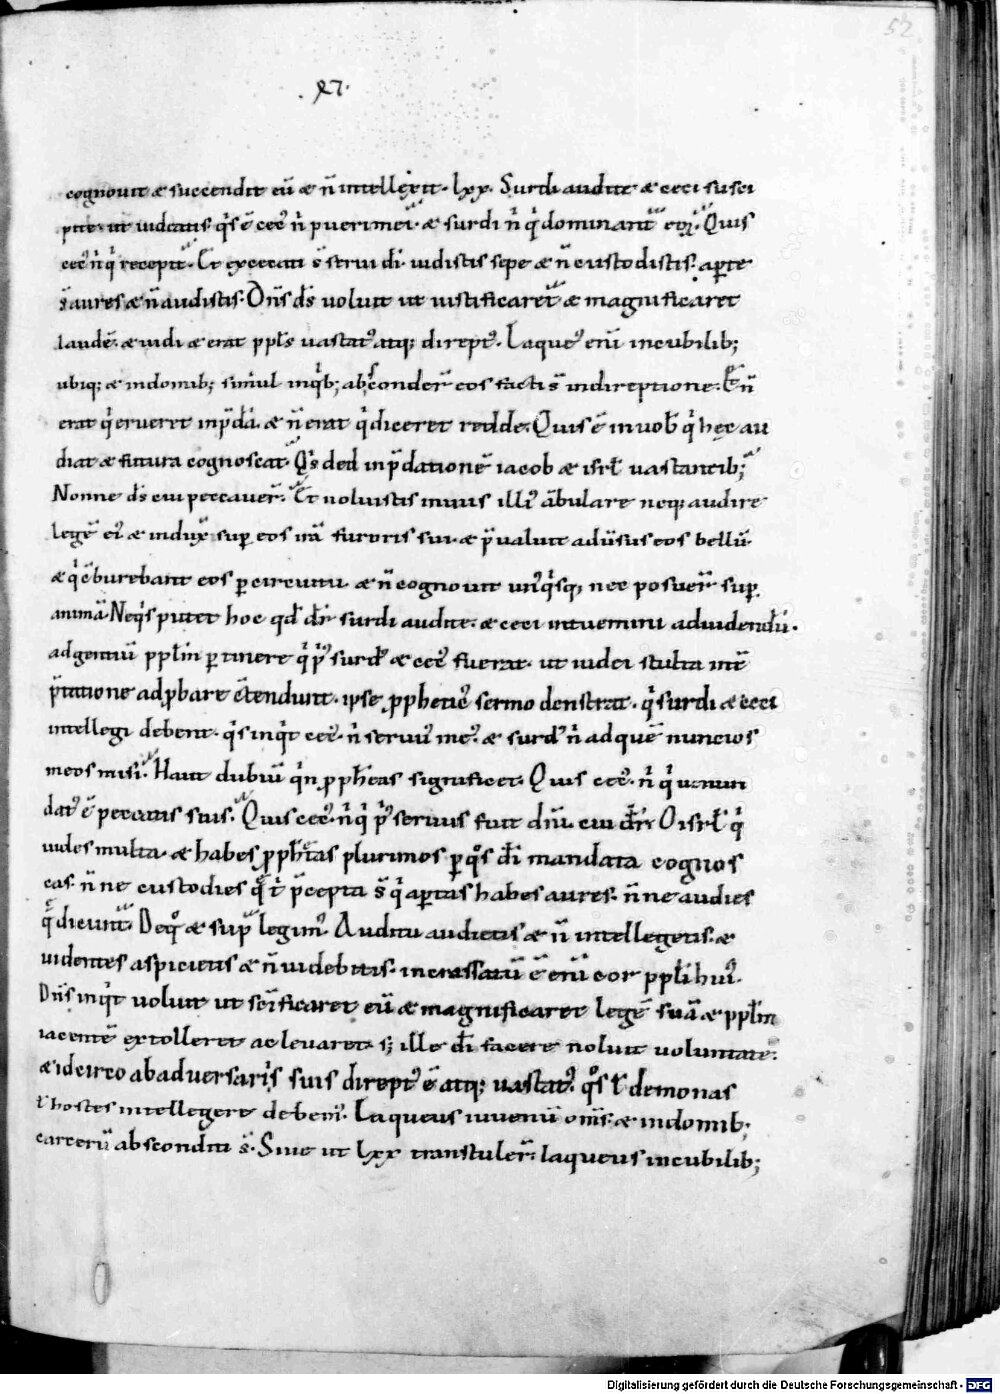 52
.xv.
cognouit & succendit eū & ñ intellexit. lxx. Surdi audite & ceci susci
pite. ut uideatis. qi̇s ē cec᷒ ñ pueri mei. & surdi ñ qi̇ dominant̄ eoꝝ. Quis
cec᷒ ñ qi̇ recepit. Et excecati s̄ serui dī. uidistis sepe & ñ custodistis. aꝑte
s̄ aures & ñ audistis. Dn̄s ds̄ uoluit ut iustificaret̄ & magnificaret
laudē. & uidi & erat ppl̄s uastat᷒ atq; dirept᷒. Laque᷒ eni̅ in cubilib;
ubiq; & in domib; simul in qi̇b; absconder̄ eos facti s̄ in direptione. Et ñ
erat qi̇ erueret in p̄da. & ñ erat qi̇ diceret redde. Quis ē in uob̄ qi̇ hęc au
diat & futura cognoscat. Qi̇s ded in p̄datione iacob & isrl̄ uastantib;
Nonne ds̄ cui peccauer̄. Et noluistis in uiis illi᷒ ābulare neq; audire
legē ei᷒ & induxͭ suꝑ eos irā furoris sui. & p̄ualuit aduʼsus eos bellū.
& qi̇ cōburebant eos ꝑ circuitu & ñ cognouit un᷒qi̇sq; nec posuer̄ suꝑ
animā. Neqi̇s putet hoc qd̄ dr̄ surdi audite. & ceci intuemini ad uidendū.
ad gentiū ppl̄m ꝑtinere qi̇ pi̇᷒ surd᷒ & cec᷒ fuerat. ut iudei stulta int̄
p̄tatione adꝓbare c̄tendunt. ipse ꝓphetic᷒ sermo demstrat. qi̇ surdi & ceci
intellegi debent. qi̇s inqi̇t cec᷒. ñ seruu᷒ me᷒. & surd᷒ ñ ad quē nuncios
meos misi. Haut dubiū qi̇n ꝓphetas significet. Quis cec᷒. ñ qi̇ uenun
dat᷒ ē peccatis suis. Quis cec᷒. ñ qi̇ pi̇᷒ seruus fuit dn̄i. cui dr̄. O isrl̄ qi̇
uides multa. & habes ꝓphetas plurimos ꝑ qͦs dī mandata cognos
cas. ñne custodies qͤ t̄ p̄cepta s̄ qi̇ aꝑtas habes aures. ñne audies
qͤ dicunt̄. De qͦ & supͣ legim᷒. Auditu audietis & ñ intellegetis. &
uidentes aspicietis & ñ uidebitis. incrassatū ē eni̅ cor ppl̄i hui᷒.
Dn̄s inqi̇t uoluit ut sc̄ificaret eū & magnificaret legē suā & ppl̄m
iacentē extolleret ac leuaret. s; ille dī facere noluit uoluntatē.
& idcirco ab aduersariis suis dirept᷒ ē atq; uastat᷒. qͦs t̄ demonas
t̄ hostes intellegere debem᷒. Laqueus iuuenū om̄s. & in domib;
carcerū absconditi s̄. Siue ut lxx transtuler̄. laqueus in cubilib;
Digitalisierung gefördert durch die Deutsche Forschungsgemeinschaft - DFG